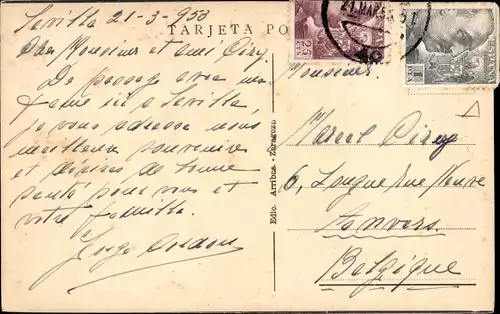 Sevilla 21-3-953
TARJETA PO
Cher Monsieur et ami
De passage avec ma
femme ici a Sevilla,
je vous adresse nos
meilleurs souvenirs
et désirs de bonne
santé pour vous et
votre famille.
Edic. Arribas - Zaragoza
21.MAR.5
Monsieur
Marcel
6, Longue rue Neuve
Anvers
Belgique